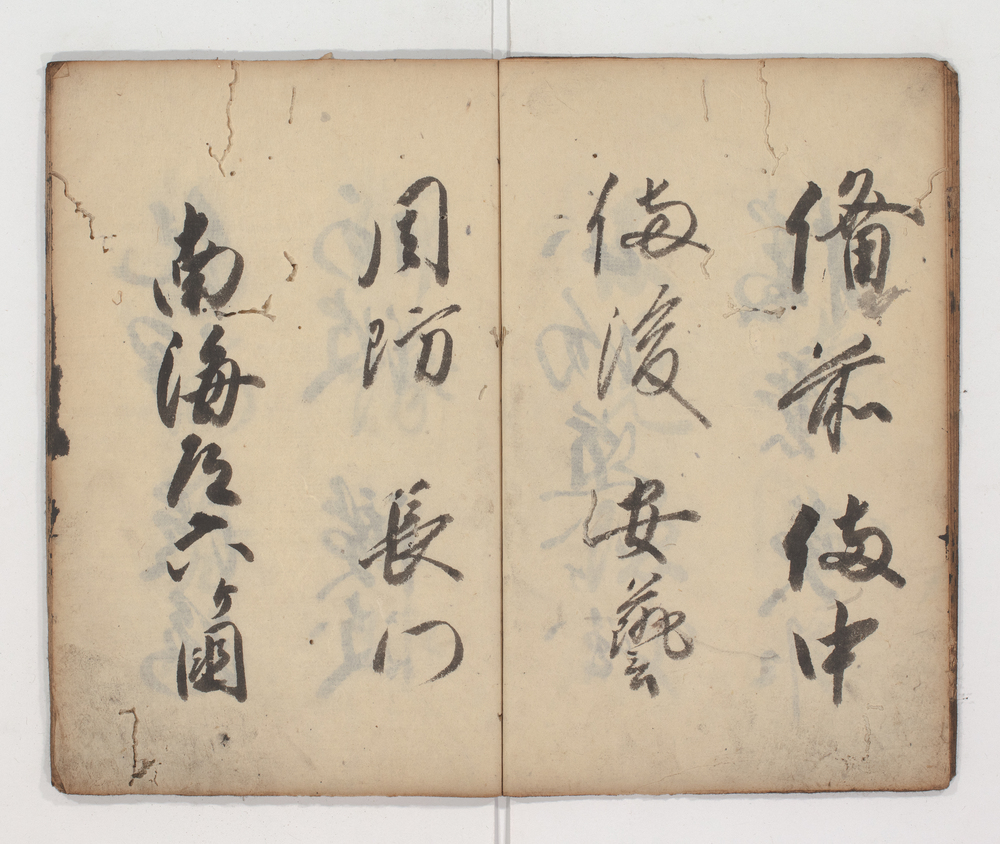 備前 備中
備後 安藝
周防 長門
南海道六ヶ國